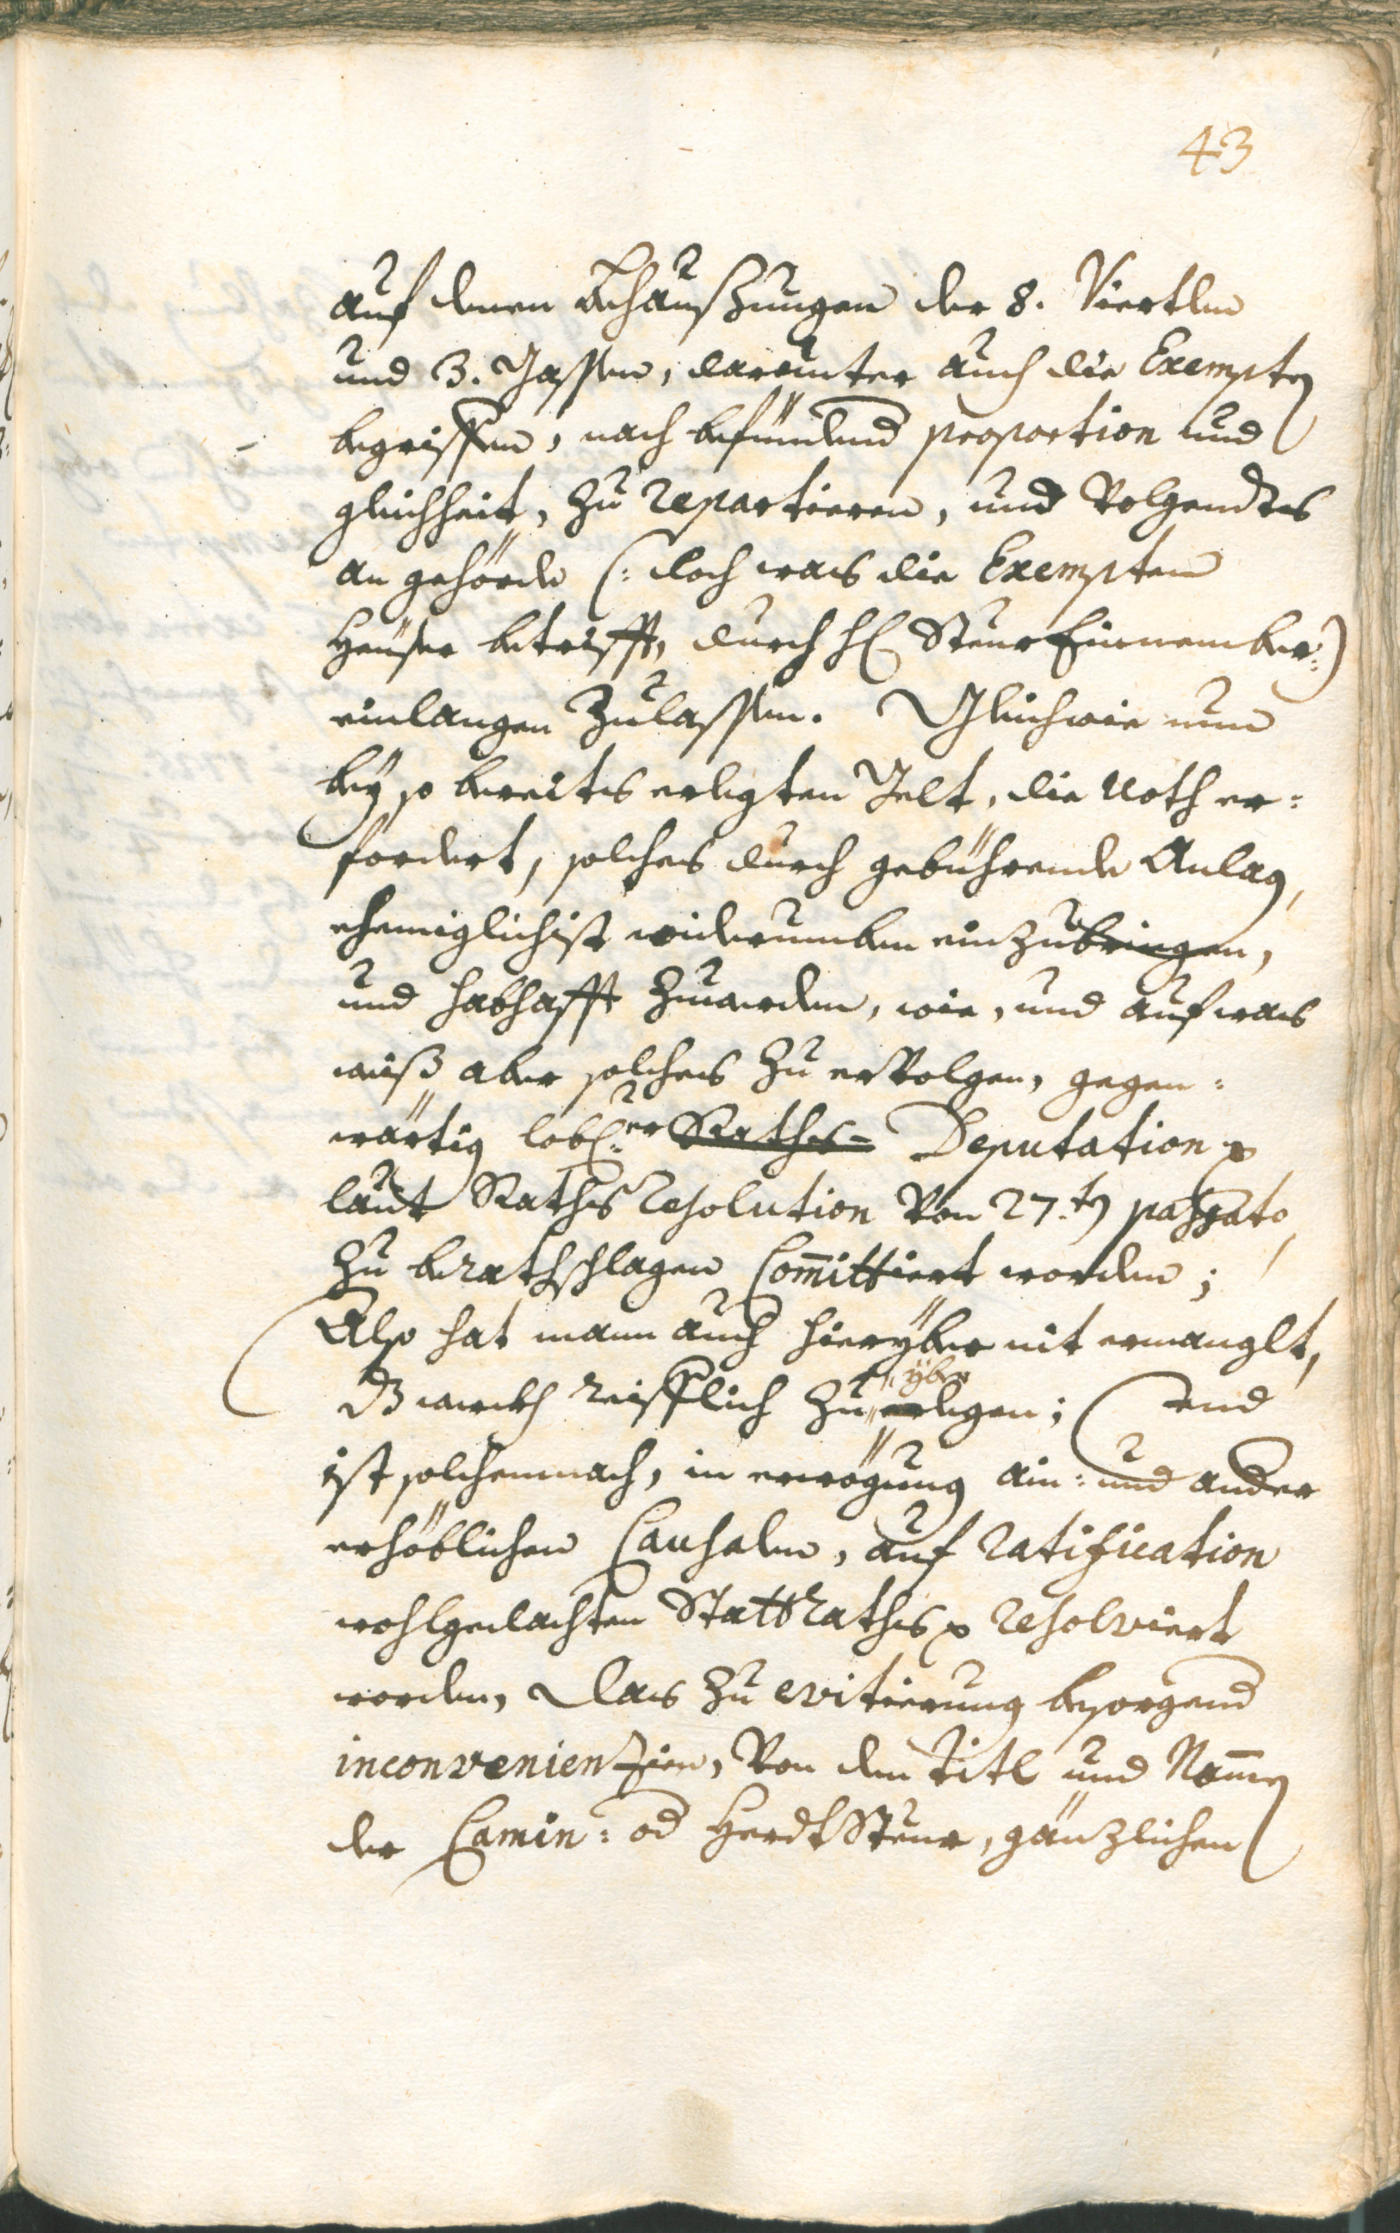 43
auf denen Behaußungen der 8. Viertlen
und 3. Gassen, darunter auch die Exempten
begriffen, nach befündend proportion und
gleichheit, zu repartieren, und Volgendts
an gehörde (: doch was die Exempten
Heüser betrifft, durch H Steur Einnember :)
einlangen Zulassen. Gleichwie nun
beÿ so bereits erlegten Gelt, die Noth er=
fordert, solches durch gebührende Anlag,
ehemiglichist widerumben einzubringen,
und habhafft zuwerden, wie, und auf was
weiß aber solches zu erVolgen, gegen=
wärtig lobl:er Raths= Deputation
laut Raths resolution Von 27.ten passato,
zu berathschlagen Committiert worden;
Also hat mann auch hierÿber nit ermanglt,
werckh reifflich zu ÿber legen; und
ist solchemnach, in erwögung ain= und ander
erhöblichen Causalen, auf ratification
wohlgedachten StattRaths resolviert
worden, das zu evitierung besorgend
inconvenientzien, Von dem titl und Nammen
der Camin= od HerdtSteur, gäntzlichen